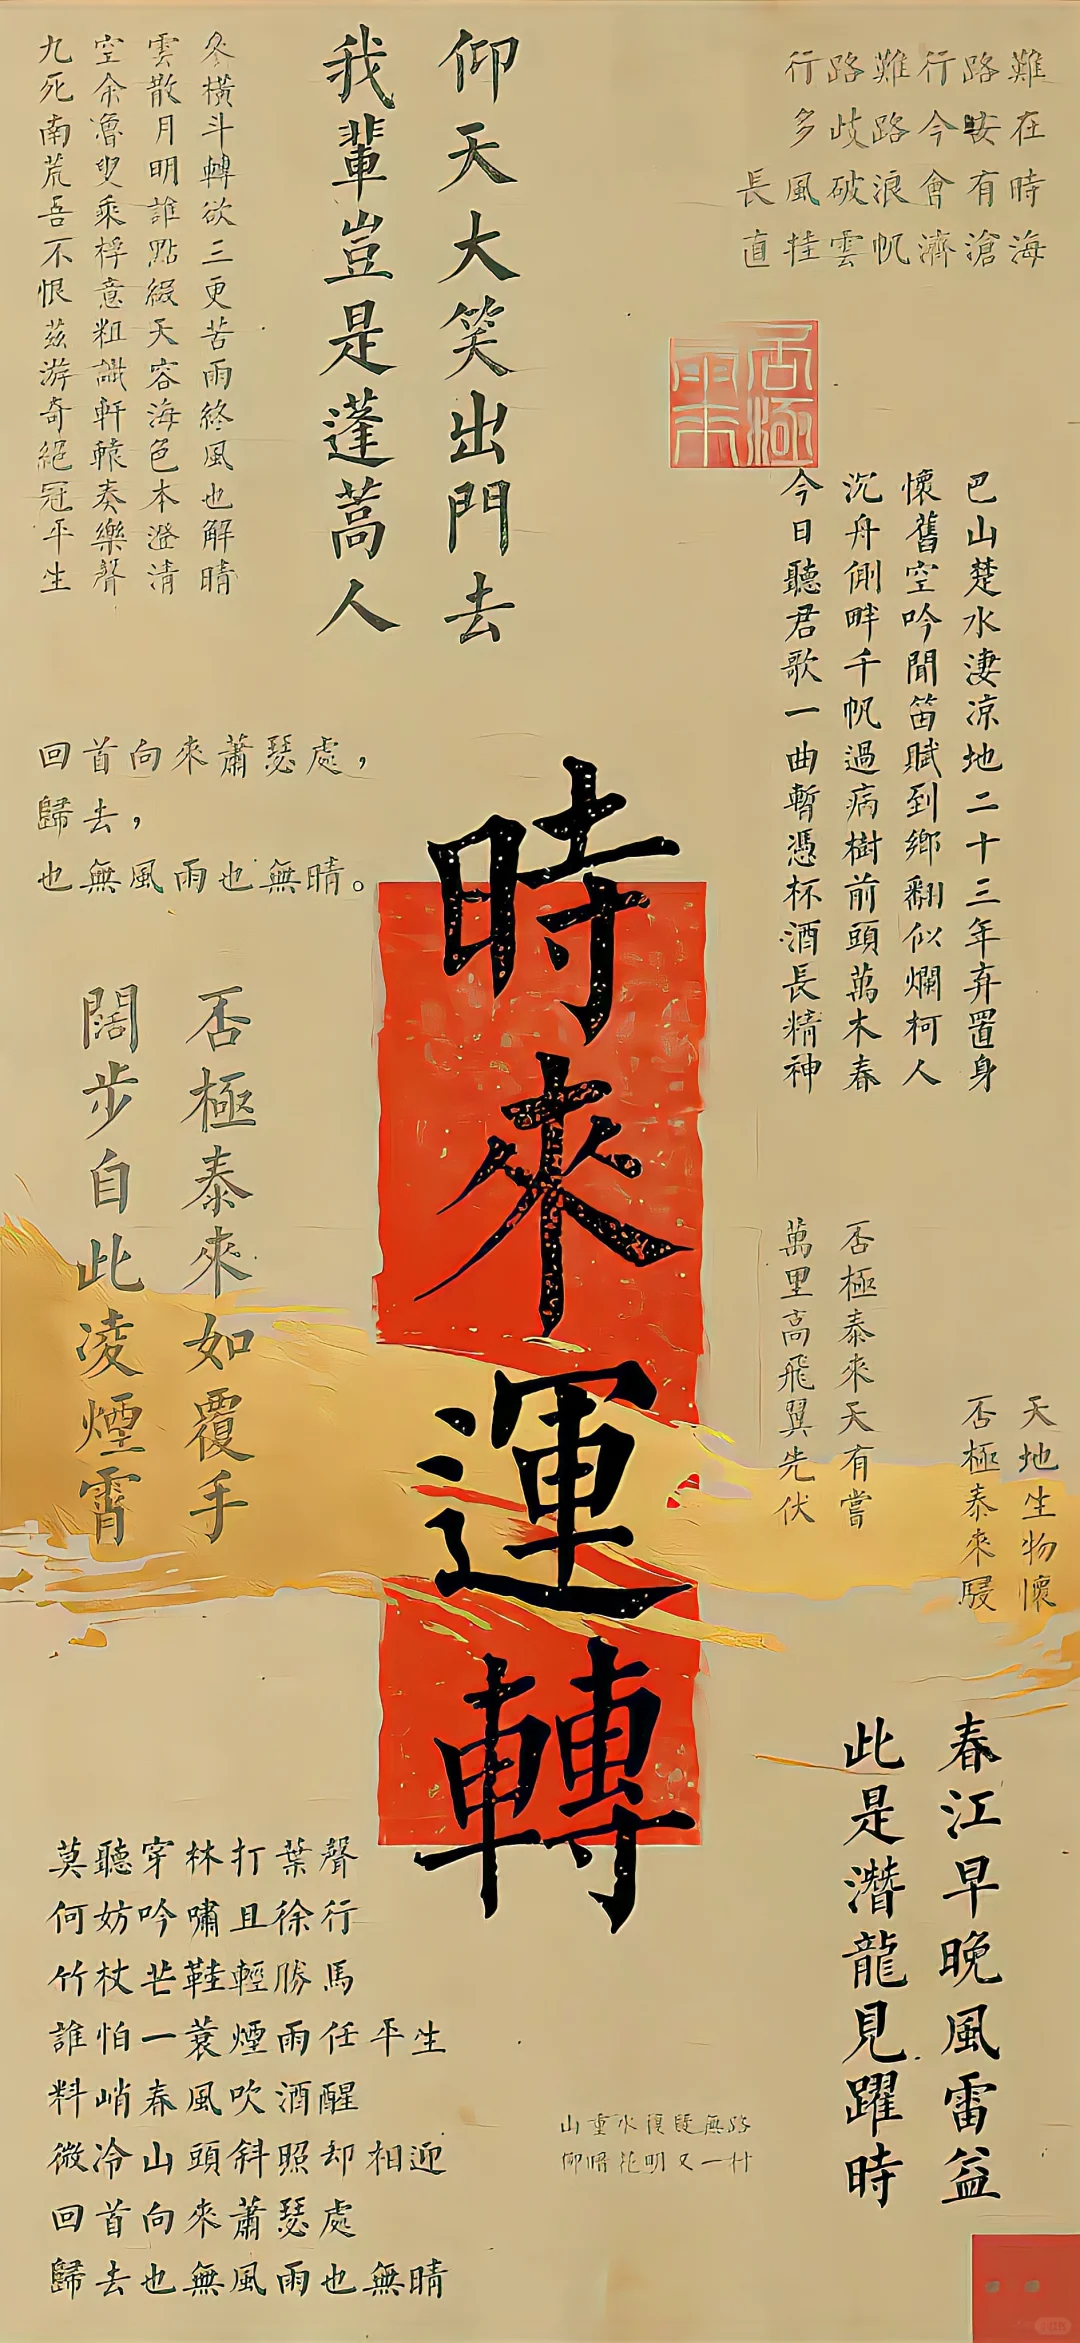 行路難行路難
多歧路今安在
長風破浪會有時
直挂雲帆濟滄海
仰天大笑出門去
我輩豈是蓬蒿人
參橫斗轉欲三更苦雨終風也解晴
雲散月明誰點綴天容海色本澄清
空余魯叟乘桴意粗識軒轅奏樂聲
九死南荒吾不恨茲游奇絕冠平生
否極
巴山楚水淒涼地二十三年弃置身
懷舊空吟聞笛賦到鄉翻似爛柯人
沉舟側畔千帆過病樹前頭萬木春
今日聽君歌一曲暫憑杯酒長精神
回首向來蕭瑟處，
歸去，
也無風雨也無晴。
時來運轉
否極泰來如覆手
闊步自此凌煙霄
否極泰來天有嘗
萬里高飛翼先伏
天地生物懷
否極泰來駸
春江早晚風雷益
此是潛龍見躍時
莫聽穿林打葉聲
何妨吟嘯且徐行
竹杖芒鞋輕勝馬
誰怕一蓑煙雨任平生
料峭春風吹酒醒
微冷山頭斜照却相迎
回首向來蕭瑟處
歸去也無風雨也無晴
山重水復疑無路
柳暗花明又一村